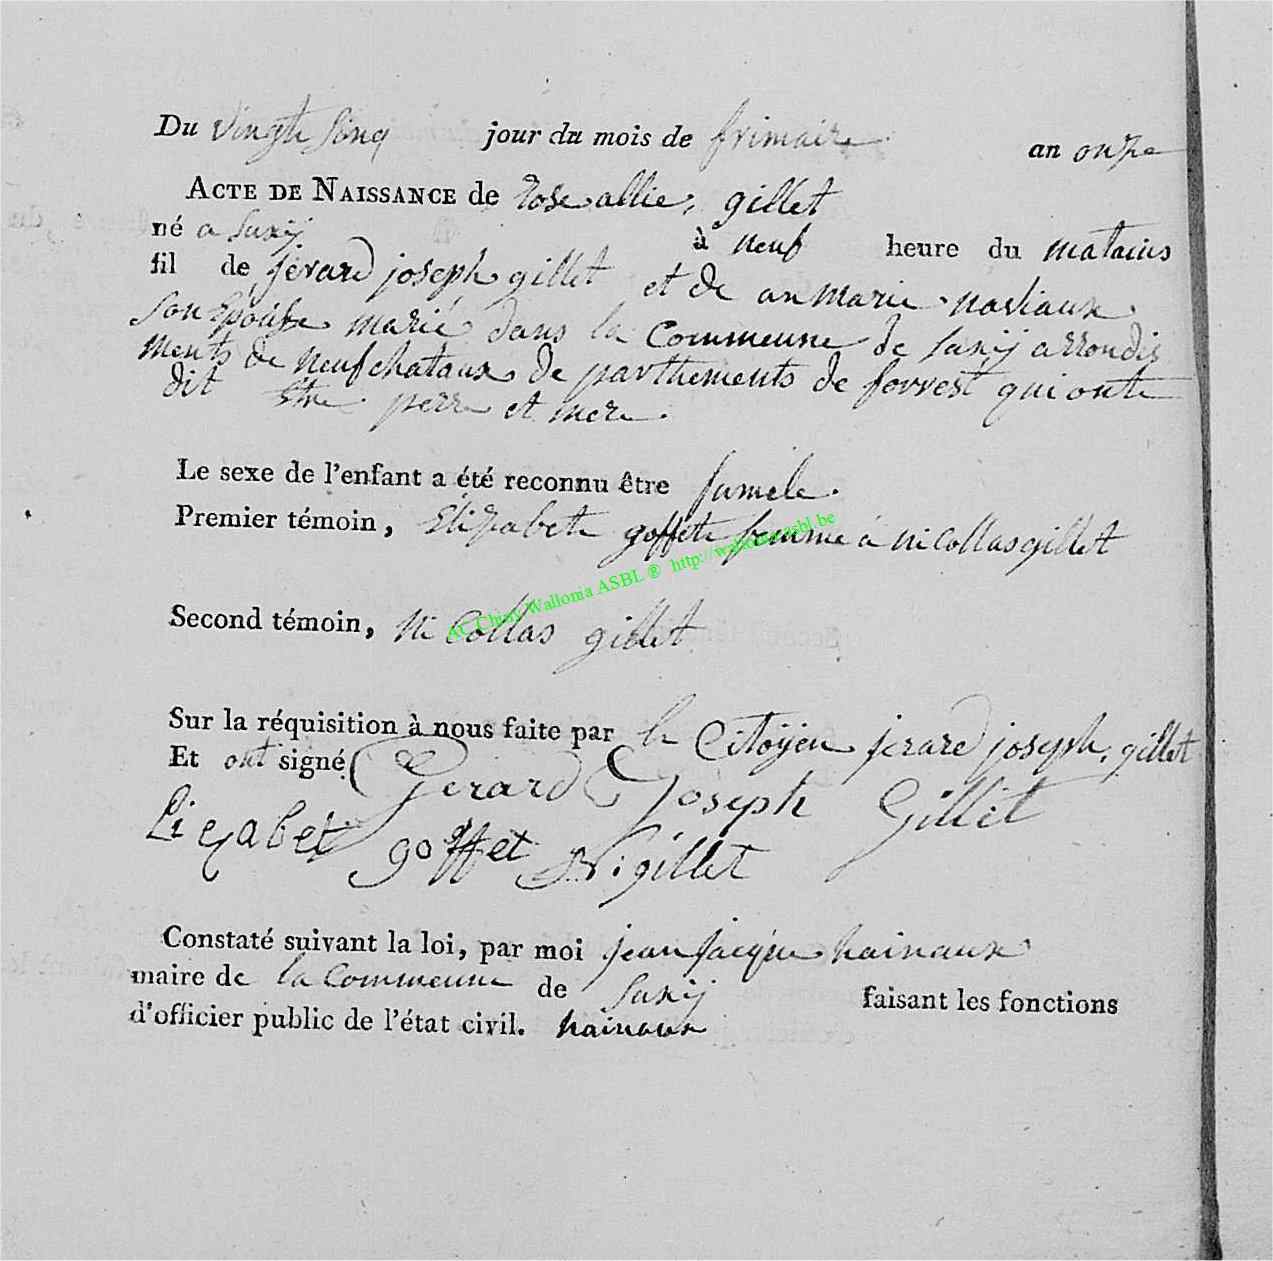 Du vingte sinq jour du mois de frimaire an onze
ACTE DE NAISSANCE de rose allie, gillet
né a suxÿ à neuf heure du matains
fil de jerard joseph gillet et de an marie noviaux
son Epouse marié dans la Commeune de suxÿ arrondis
ments de neufchataux de parthements de forrest qui onte
dit Etre perre et mere.
Le sexe de l'enfant a été reconnu être fumele.
Premier témoin, Elizabete goffete femme á nicollas gillet
AC Chiny Wallonia ASBL ® http://wallonia-asbl.be
Second témoin, ni Collas gillet
Sur la réquisition à nous faite par le Citoÿen jerard joseph, gillet
Et ont signé Gerard Joseph Gillet
Liezabet goffet N: gillet
Constaté suivant la loi, par moi jean jacque hainaux
maire de la Commeune de suxÿ faisant les fonctions
d'officier public de l'état civil. hainaux